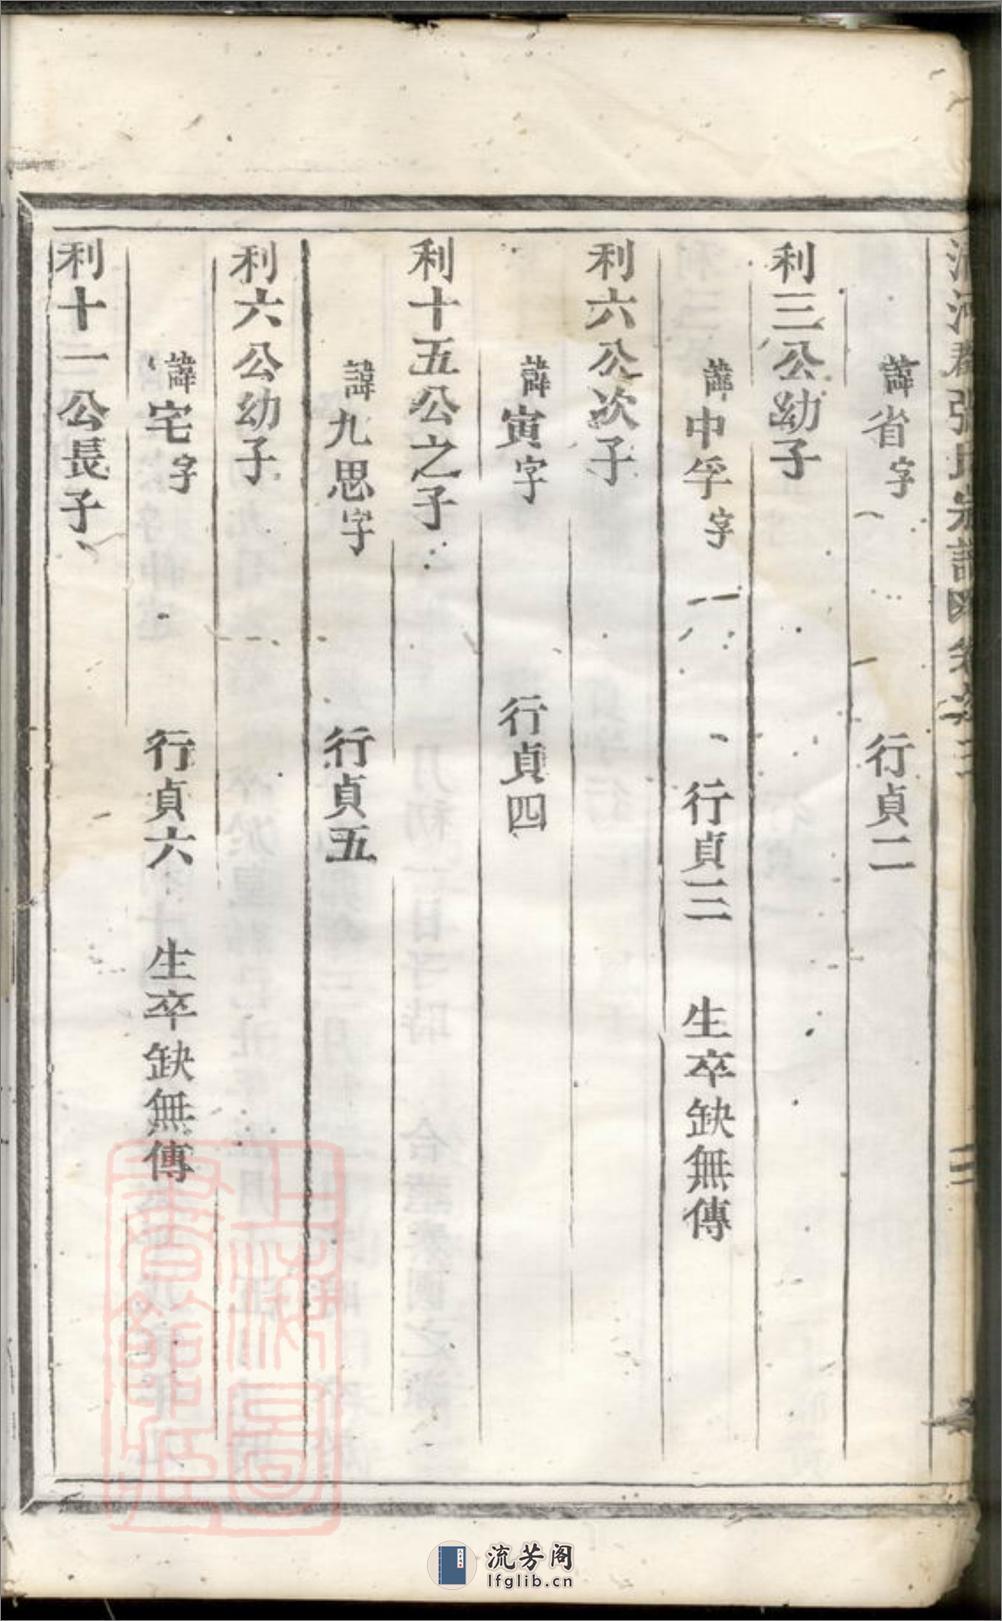 清河郡張氏宗譜 卷之三
二
諱省字 行貞二
利三公幼子
諱中孚字 行貞三 生卒缺無傳
利六公次子
諱寅字 行貞四
利十五公之子
諱九思字 行貞五
利六公幼子
諱宅字 行貞六 生卒缺無傳
利十一公長子
上海圖書館藏
流芳阁
lfglib.cn